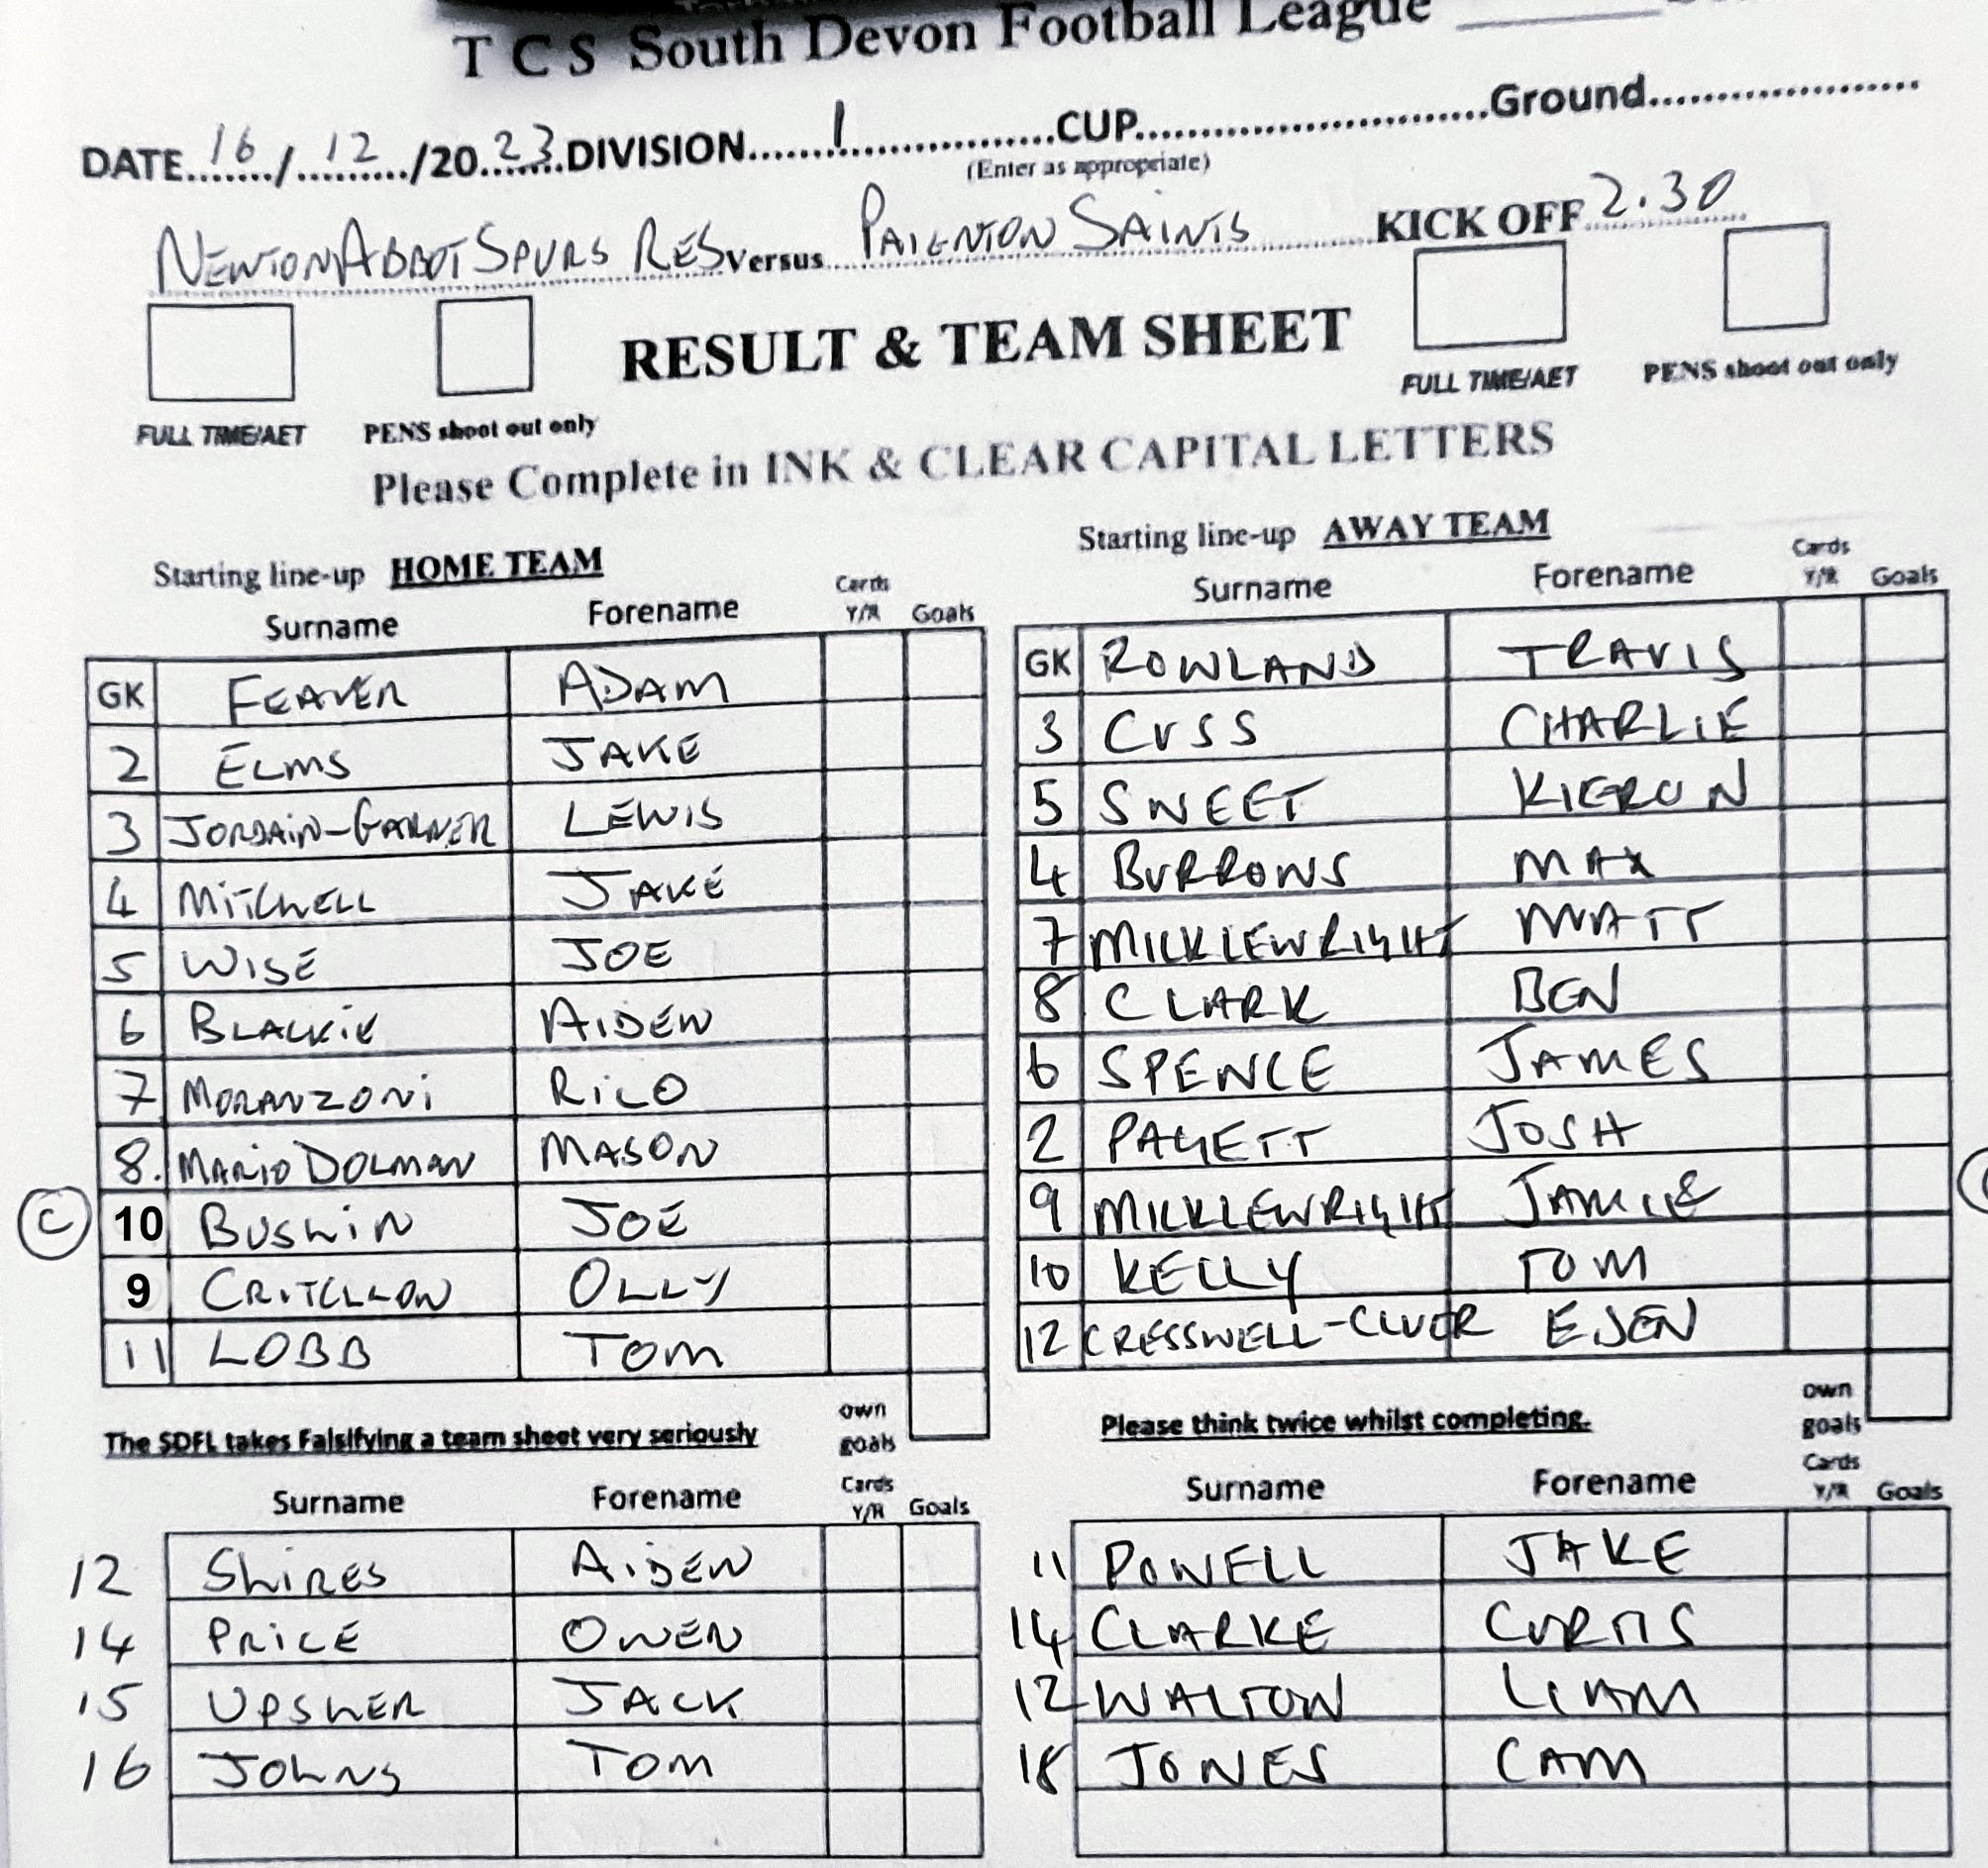 T C S South Devon Football League
DATE 16 / 12 /20 23 DIVISION 1 CUP Ground
(Enter as appropriate)
NEWTON ABBOT SPURS RES Versus PAIGNTON SAINTS KICK OFF 2.30
RESULT & TEAM SHEET
FULL TIME/AET PENS shoot out only FULL TIME/AET PENS shoot out only
Please Complete in INK & CLEAR CAPITAL LETTERS
Starting line-up HOME TEAM
Surname Forename Cards Y/R Goals
GK FEAVER ADAM
2 ELMS JAKE
3 JORDAIN-GARNER LEWIS
4 MITCHELL JAKE
5 WISE JOE
6 BLACKIE AIDEN
7 MORANZONI RICO
8. MARIO DOLMAN MASON
C 10 BUSHIN JOE
9 CRITCHLOW OLLY
11 LOBB TOM
own goals
The SDFL takes Falsifying a team sheet very seriously
Surname Forename Cards Y/R Goals
12 SHIRES AIDEN
14 PRICE OWEN
15 UPSHER JACK
16 JOHNS TOM
Starting line-up AWAY TEAM
Surname Forename Cards Y/R Goals
GK ROWLAND TRAVIS
3 CUSS CHARLIE
5 SWEET KIERON
4 BURROWS MAX
7 MICKLEWRIGHT MATT
8 CLARK BEN
6 SPENCE JAMES
2 PAGETT JOSH
9 MICKLEWRIGHT JAMIE
10 KELLY TOM
12 CRESSWELL-CLUER
own goals
Please think twice whilst completing.
Surname Forename Cards Y/R Goals
11 POWELL JAKE
14 CLARKE CURTIS
12 WALTON LIAM
18 JONES CAM